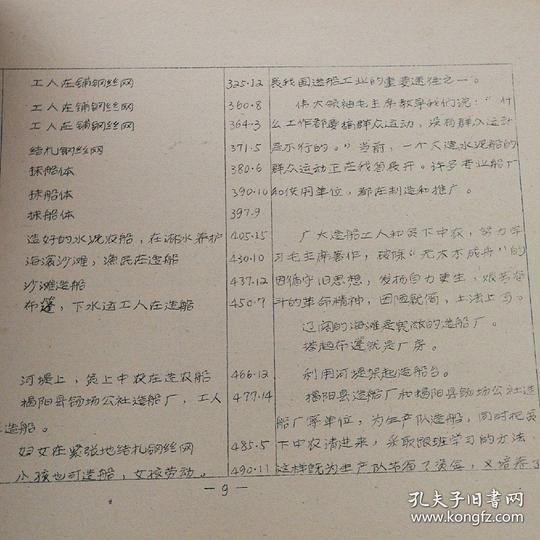 工人在铺钢丝网 325.12 是我国造船工业的重要途径之一。
工人在铺钢丝网 360.8 伟大领袖毛主席教导我们说：“什
工人在铺钢丝网 364.3 么工作都要搞群众运动，没有群众运动
结札钢丝网 371.5 是不行的。”当前，一个大造水泥船的
抹船体 380.6 群众运动正在我省展开。许多专业船厂
抹船体 390.10 和使用单位，都在制造和推广。
抹船体 397.9
造好的水泥农船，在淋水养护 405.15 广大造船工人和贫下中农，努力学
海滨沙滩，渔民在造船 430.10 习毛主席著作，破除“无木不成舟”的
沙滩造船 437.12 因循守旧思想，发扬自力更生，艰苦奋
布蓬，下水运工人在造船 450.7 斗的革命精神，因陋就简，土法上马。
辽阔的海滩是宽敞的造船厂。
搭起布蓬就是厂房。
河堤上，贫上中农在造农船 466.12 利用河堤架起造船台。
揭阳县锡场公社造船厂，工人 477.14 揭阳县造船厂和揭阳县锡场公社造
造船。 船厂等单位，为生产队造船，同时把贫
妇女在紧张地结札钢丝网 485.5 下中农请进来，采取跟班学习的方法
小孩也可造船，女孩劳动。 490.11 这样既为生产队节省了资金，又培养了
— 9 —
孔夫子旧书网
www.kongfz.com